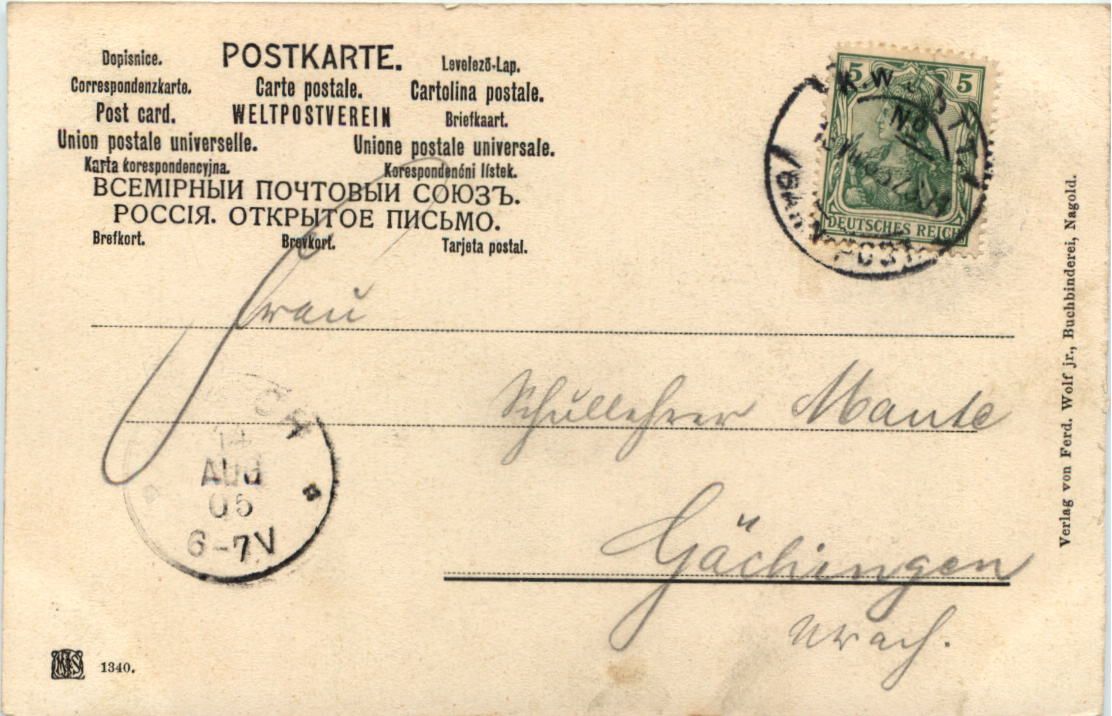 Dopisnice. POSTKARTE. Levelező-Lap.
Correspondenzkarte. Carte postale. Cartolina postale.
Post card. WELTPOSTVEREIN Briefkaart.
Union postale universelle. Unione postale universale.
Karta korespondencyjna. Korespondenční lístek.
ВСЕМІРНЫИ ПОЧТОВЫИ СОЮЗЪ.
РОССІЯ. ОТКРЫТОЕ ПИСЬМО.
Brefkort. Brevkort. Tarjeta postal.
5 5
DEUTSCHES REICH
K.WÜRTT.
BAHNPOST
Frau
Schullehrer Mante
Gächingen
Urach.
14
AUG
05
6-7V
Verlag von Ferd. Wolf jr., Buchbinderei, Nagold.
1340.